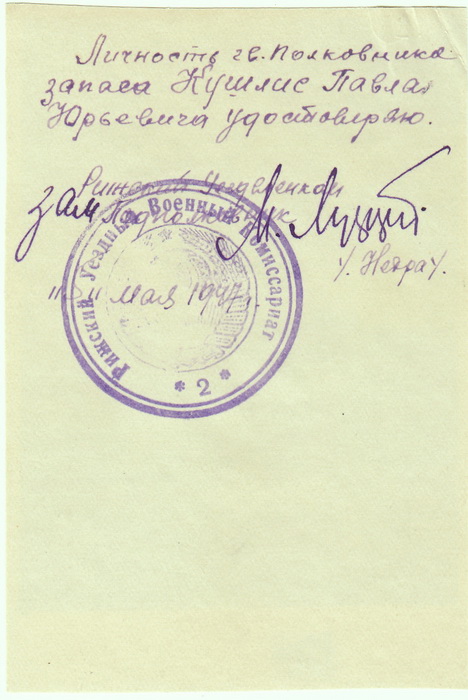 Личность гв. полковника
запаса Кушлис Павла
Юрьевича удостоверяю.
Рижский Уездвоенком
зам Подполковник
/. Нетра /.
" " мая 1947 г.
Рижский Уездный Военный Комиссариат
* 2 *